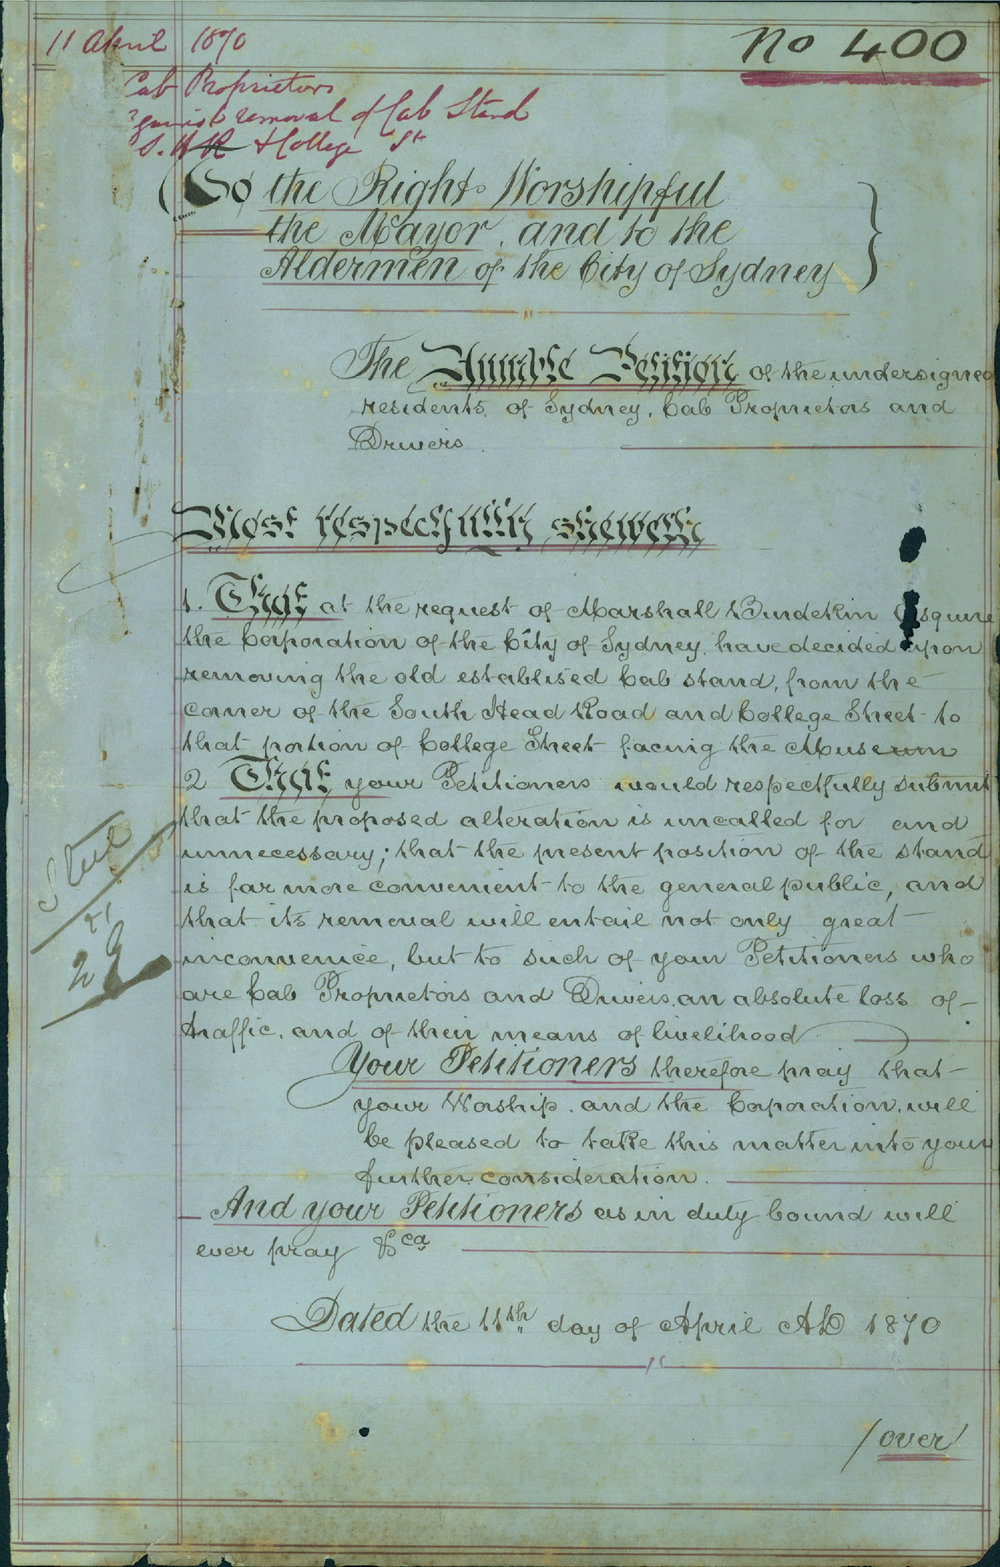 11 April 1870
No 400
Cab Proprietors
against removal of Cab Stand
S. H R & College St
To the Right Worshipful
the Mayor, and to the
Aldermen of the City of Sydney
The Humble Petition of the undersigned
residents, of Sydney, Cab Proprietors and
Drivers
Most respectfully sheweth
1. That at the request of Marshall Burdekin Esquire
the Corporation of the City of Sydney, have decided upon
removing the old establised Cab stand, from the
corner of the South Head Road and College Street to
that portion of College Street facing the Museum
2 That your Petitioners would respectfully submit
that the proposed alteration is uncalled for and
unnecessary; that the present position of the stand
is far more convenient to the general public, and
that its removal will entail not only great
inconvenice, but to such of your Petitioners who
are Cab Proprietors and Drivers, an absolute loss of
traffic, and of their means of livelihood
Your Petitioners therefore pray that
your Worship, and the Corporation, will
be pleased to take this matter into your
further consideration.
And your Petitioners as in duty bound will
ever pray &ca
Dated the 11th day of April AD 1870
/over